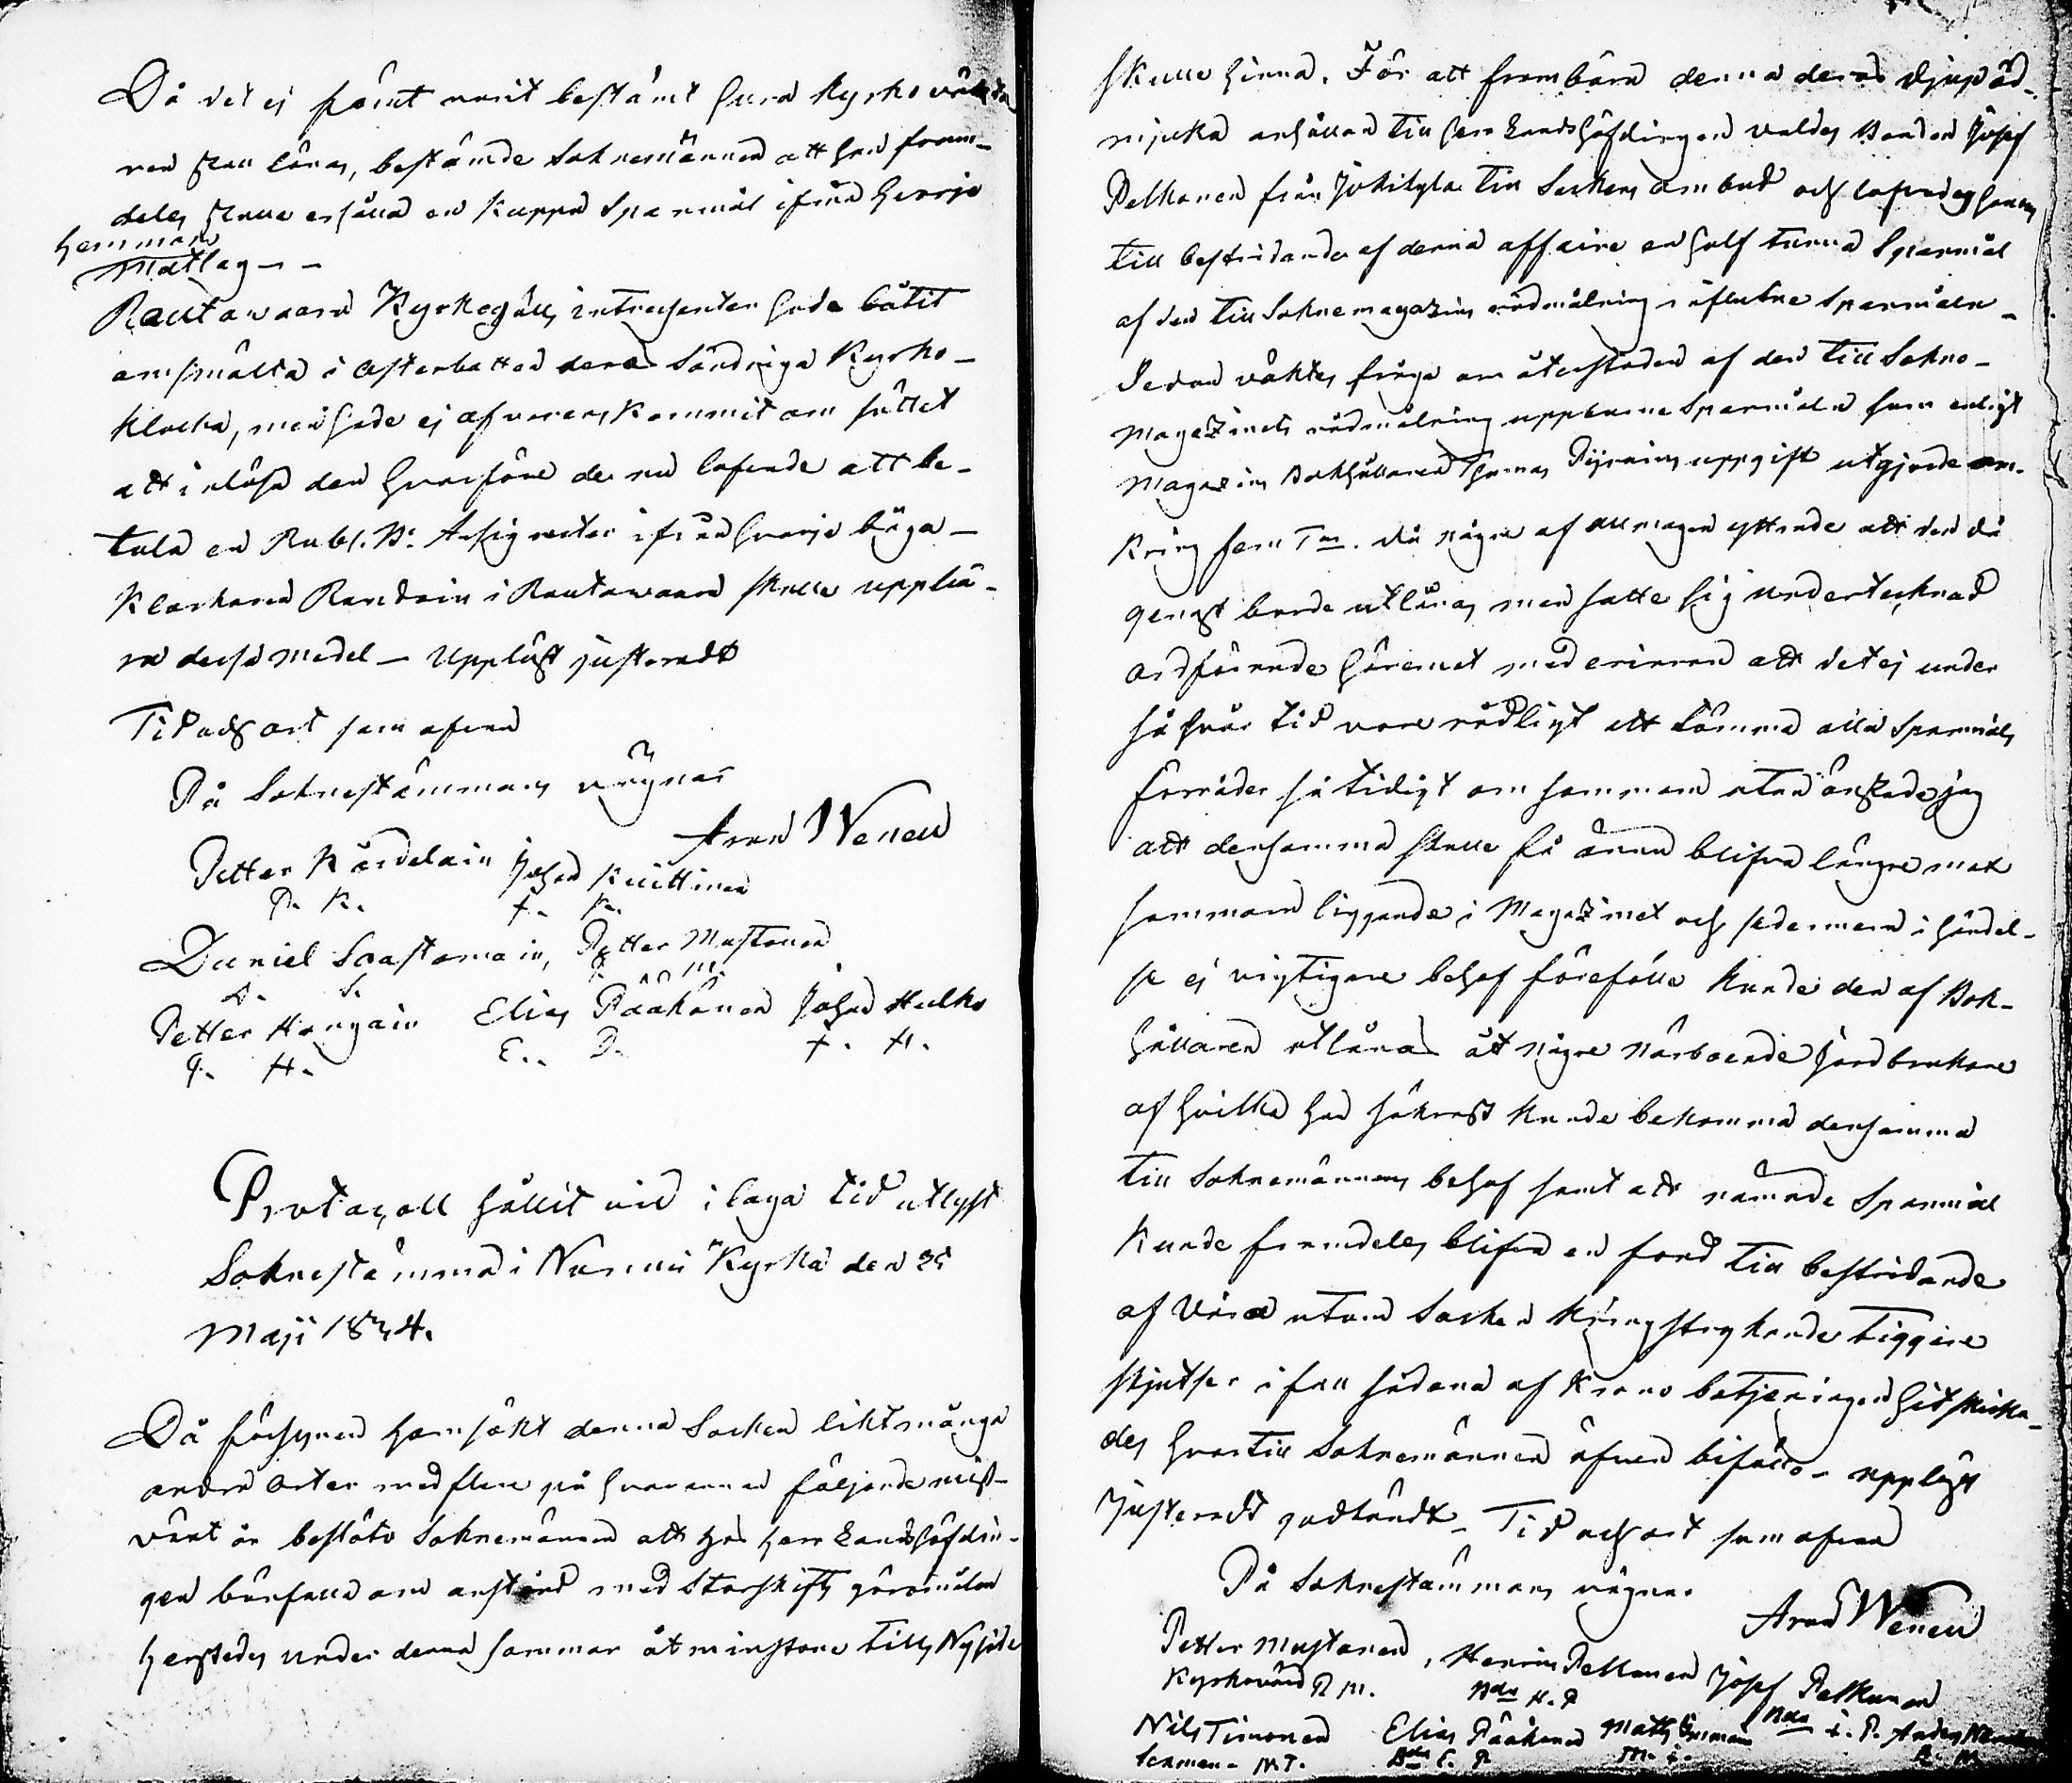 Då det ej präntvarit bestämt huru Kyrkoväkta-
ren skall lönas, bestämde Soknemännen att han fram-
deles skulle erhålla en Kappa Spanmål ifrån hvarje
hemmans
Matlag - -
Rautavaara Kyrkogälls intressenter hade låtit
omsmälta i Österbotten deras söndriga Kyrko-
klocka, men hade ej öfverens kommit om sättet
att inlösa den hvarföre de nu lofvade att be-
tala en Rubl. Bo Assignater ifrån hvarje båga -
Klockaren Rondain i Rautawaara skulle uppbä-
ra dessa medel - Uppläst justeradt
Tid och ort som ofvan
På Sokne stämmans vägnar
Aron Wenell
Petter Kärdelain Johan Kuittinen
P. K. J. K.
Daniel Saastamoin, Petter Mustonen
D. S. P. M.
Petter Hongain Elias Pääkönen Johan Hulko
P. H. E. P. J. H.
Protocoll hållit vid i laga tid utlyst
Sokne stämma i Nurmis Kyrka den 25
Maji 1834.
Då försynen hemsökt denna Socken likt många
andra orter med flere på hvarannan följande miss-
växt år beslöto Sokne männen att hos Herr Landshöfdin-
gen bönfalla om anstånd med Storskifts göromålen
härstädes under denna sommar åtminstone tills Nyskörde
skulle hinna. För att frambära denna deras djupöd-
mjuka anhållan till Herr Landshöfdingen valdes Bonden Josef
Pelkonen från Jokikylä till Sockens ombud och lofvades honom
till bestridande af denna affaire en half tunna Spanmål
af den till Sokne magazins rödmålning influtne Spanmålen -
Sedan väktes fråga om återstoden af den till Sokne-
Magazinets rödmålning uppburne Spanmålen som enligt
Magazins Bokhållaren Thomas uppgift utgjorde om-
kring fem Tnr. då några af Allmogen yttrade att den då
genast borde utlånas, men satte sig undertecknad
ordförande häremot med erinran att det ej under
så svår tid vore rådligt att tömma alla Spanmåls
förråder så tidigt om sommaren utan önskade jag
att densamma skulle få ännu blifva längre mot
sommaren liggande i Magazinet och sedermera i händel-
se ej vigtigare behof förefölle kunde den af Bok-
hållaren utlånas åt några närboende jordbrukare
af hvilka han säkrast kunde bekomma densamma
till Sokne männens behof samt att nämnde Spanmål
kunde framdeles blifva en fond till bestridande
af våra utom Socken kringstrykande tiggare
skjutser i fall sådana af Krono betjeningen hitskicka-
des hvartill Sokne männen äfven biföllo - upplyst
Justeradt godkändt - Tid och ort som ofvan
På Sokne stämmans vägnar
Aron Wenell
Petter Mustonen, Henric Pelkonen Josef Pelkonen
Kyrkovärd P. M. Bde H. P. Bde J. P.
Nils Timonen Elias Pääkönen Matts Anders
Sexman - N. T. Bde E. P.